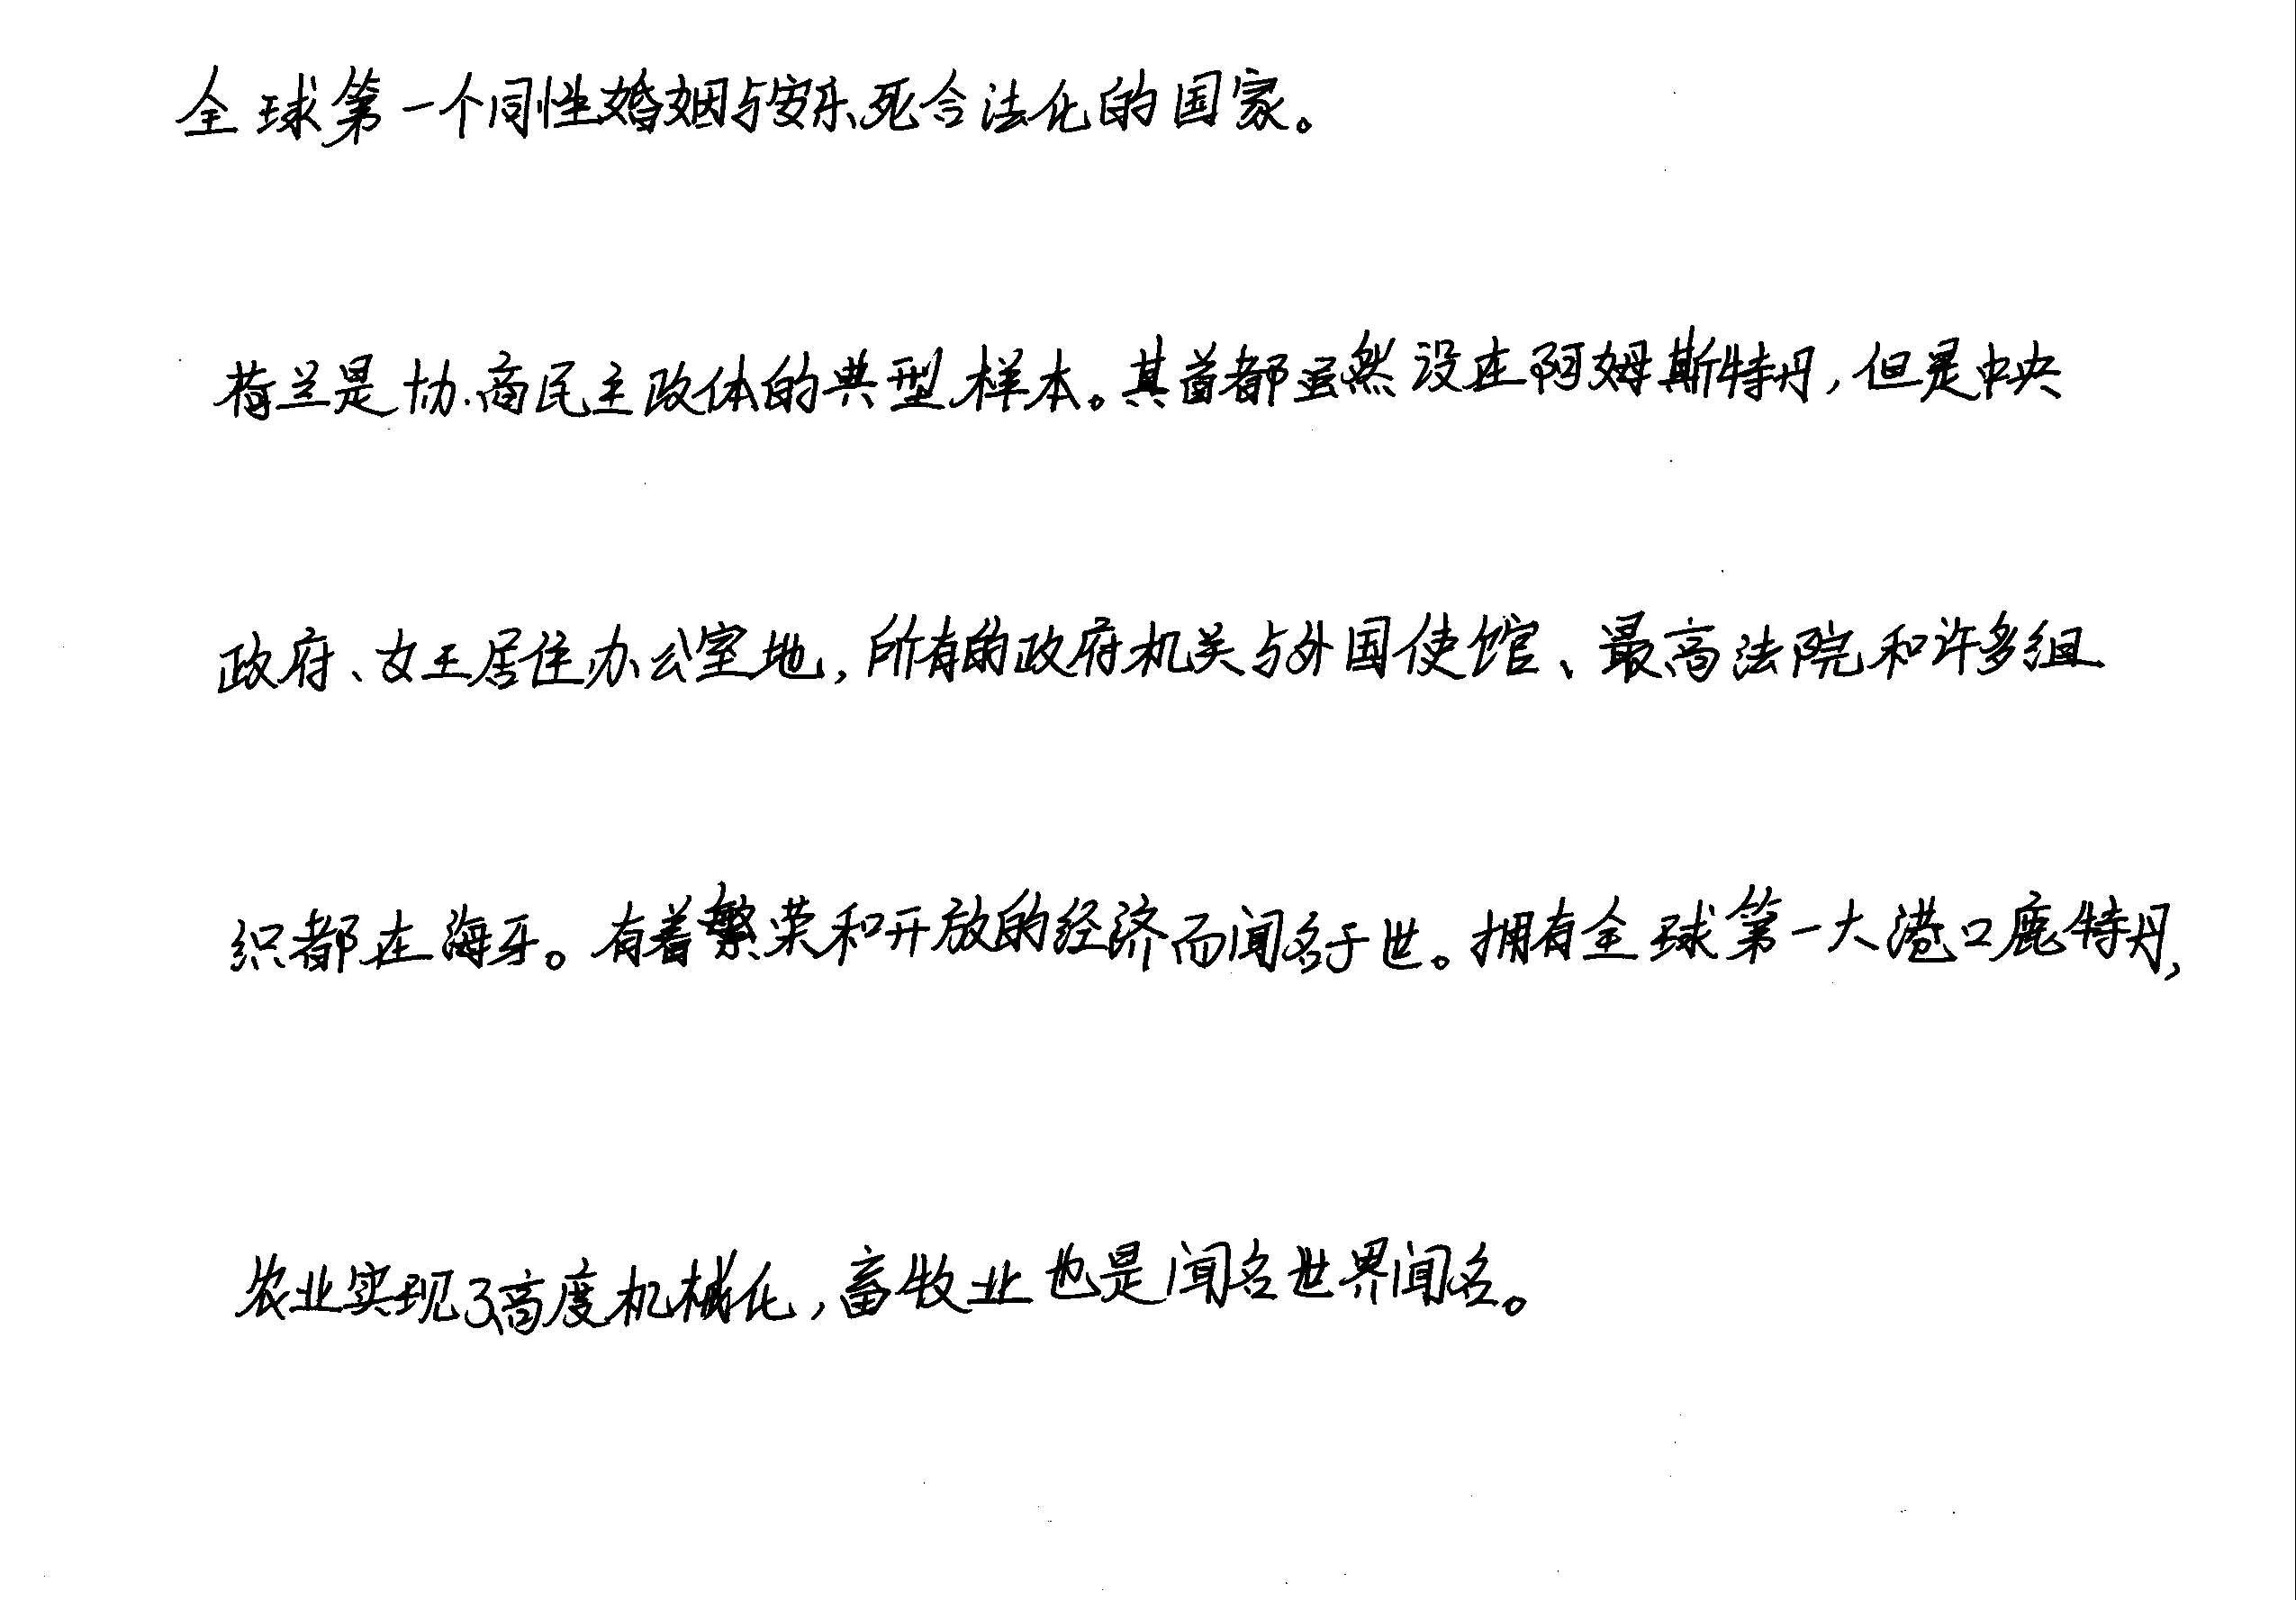 全球第一个同性婚姻与安乐死合法化的国家。
荷兰是协商民主政体的典型样本。其首都虽然设在阿姆斯特丹,但是中央
政府、女王居住办公室地,所有的政府机关与外国使馆、最高法院和许多组
织都在海牙。有着繁荣和开放的经济而闻名于世。拥有全球第一大港口鹿特丹,
农业实现了高度机械化,畜牧业也是闻名世界闻名。